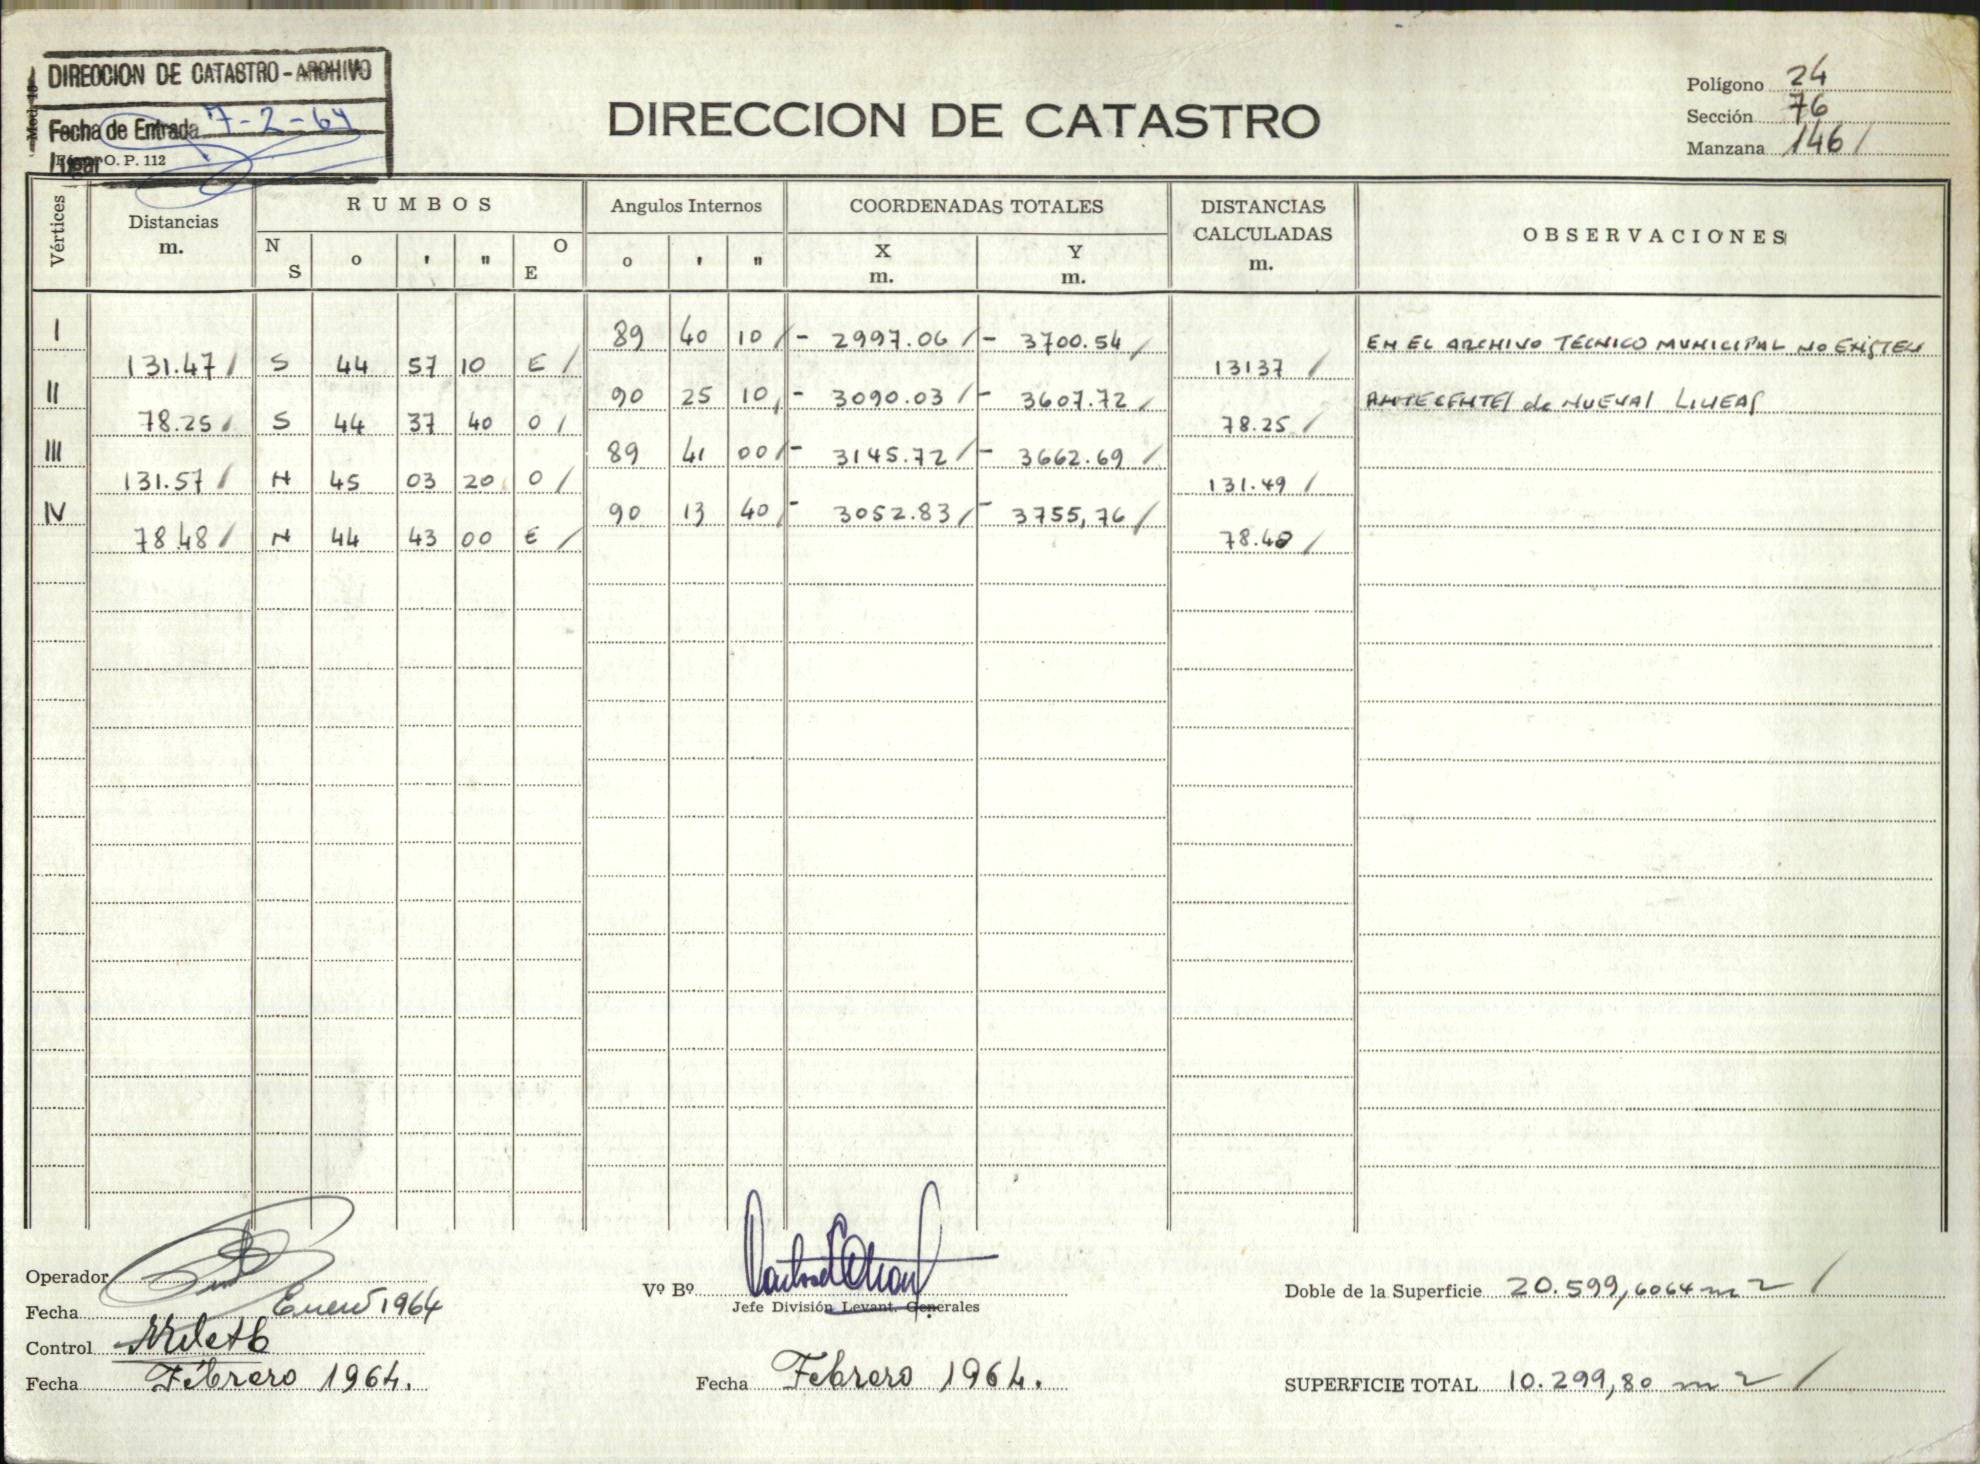 DIRECCION DE CATASTRO - ARCHIVO
Fecha de Entrada 7-2-64
Lugar
O. P. 112
DIRECCION DE CATASTRO
Polígono 24
Sección 76
Manzana 146 /
Vértices
Distancias m.
RUMBOS
N S o ' " O E
Angulos Internos
o ' "
COORDENADAS TOTALES
X m. Y m.
DISTANCIAS CALCULADAS m.
OBSERVACIONES
I 89 40 10 / - 2997.06 / - 3700.54 / EN EL ARCHIVO TECNICO MUNICIPAL NO EXISTEN
131.47 / S 44 57 10 E / 13137 /
II 90 25 10 / - 3090.03 / - 3607.72 / ANTECENTES de NUEVAS LINEAS
78.25 / S 44 37 40 O / 78.25 /
III 89 41 00 / - 3145.72 / - 3662.69 /
131.57 / N 45 03 20 O / 131.49 /
IV 90 13 40 / - 3052.83 / - 3755,76 /
78.48 / N 44 43 00 E / 78.48 /
Operador
Fecha Enero 1964
Control
Fecha Febrero 1964.
Vº Bº
Jefe División Levant. Generales
Fecha Febrero 1964.
Doble de la Superficie 20.599,6064 m2 /
SUPERFICIE TOTAL 10.299,80 m2 /